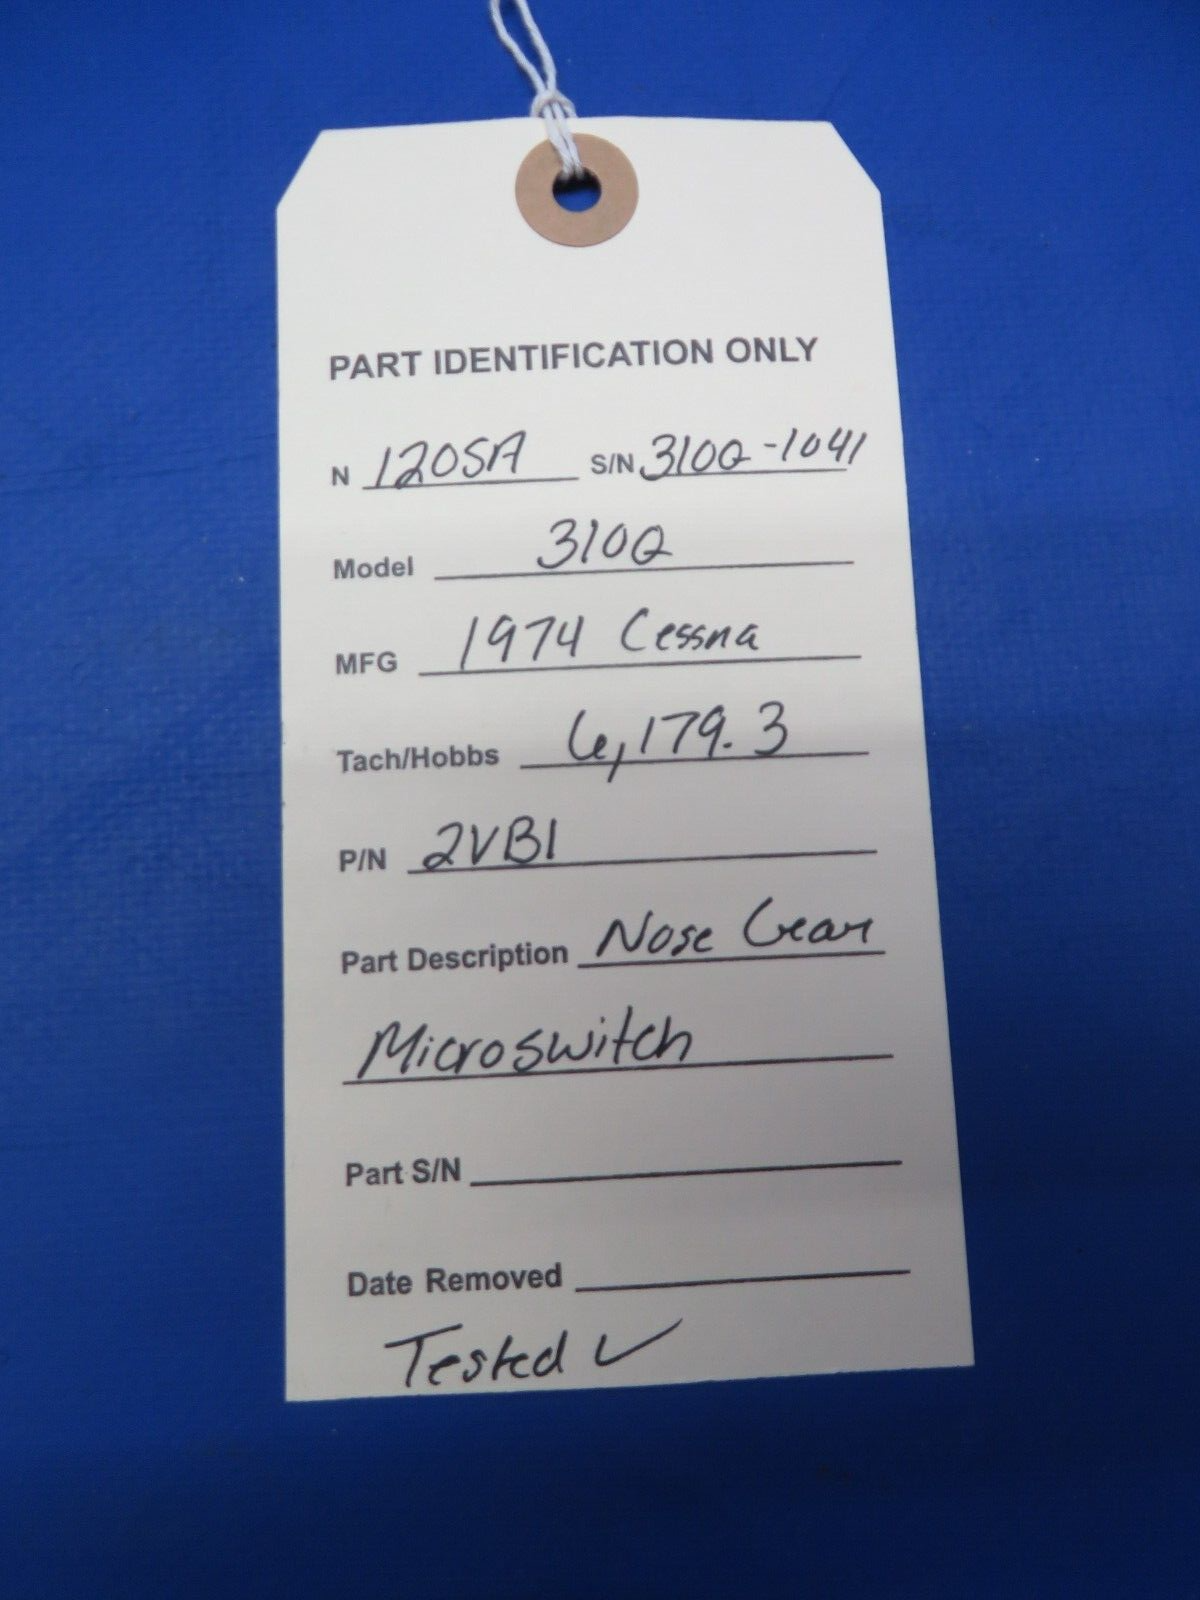 PART IDENTIFICATION ONLY
N 1205A S/N 310Q-1041
Model 310Q
MFG 1974 Cessna
Tach/Hobbs 6,179.3
P/N 2VB1
Part Description Nose Gear
Microswitch
Part S/N
Date Removed
Tested ✓